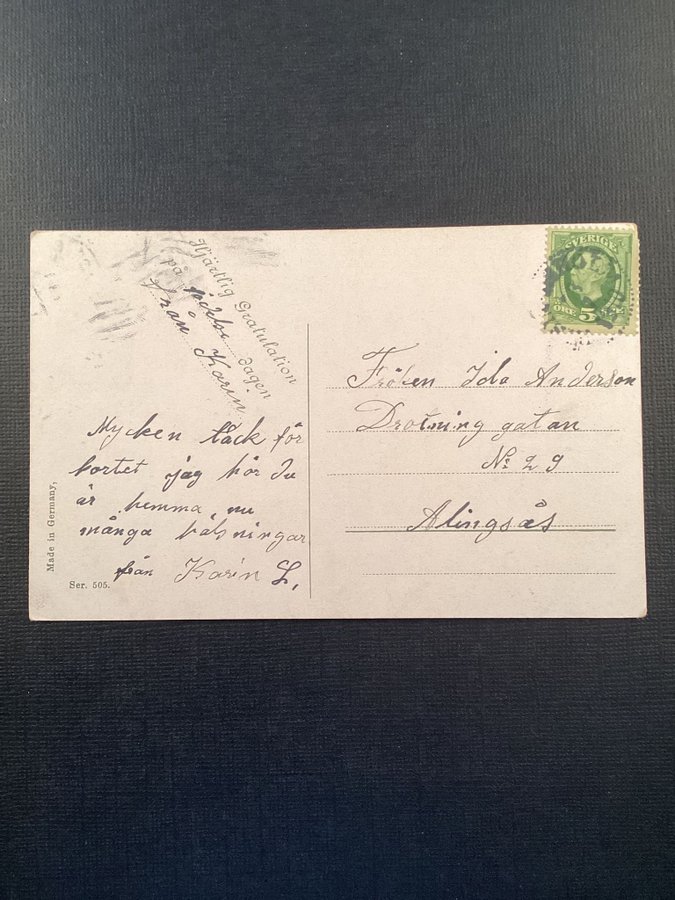 Hjärtlig Gratulation
på födelse dagen
från Karin
Mycken tack för
kortet jag hör du
är hemma nu
många hälsningar
från Karin L,
Made in Germany,
Ser. 505.
SVERIGE
5
ÖRE
Fröken Ida Anderson
Drotning gatan
No 29
Alingsås